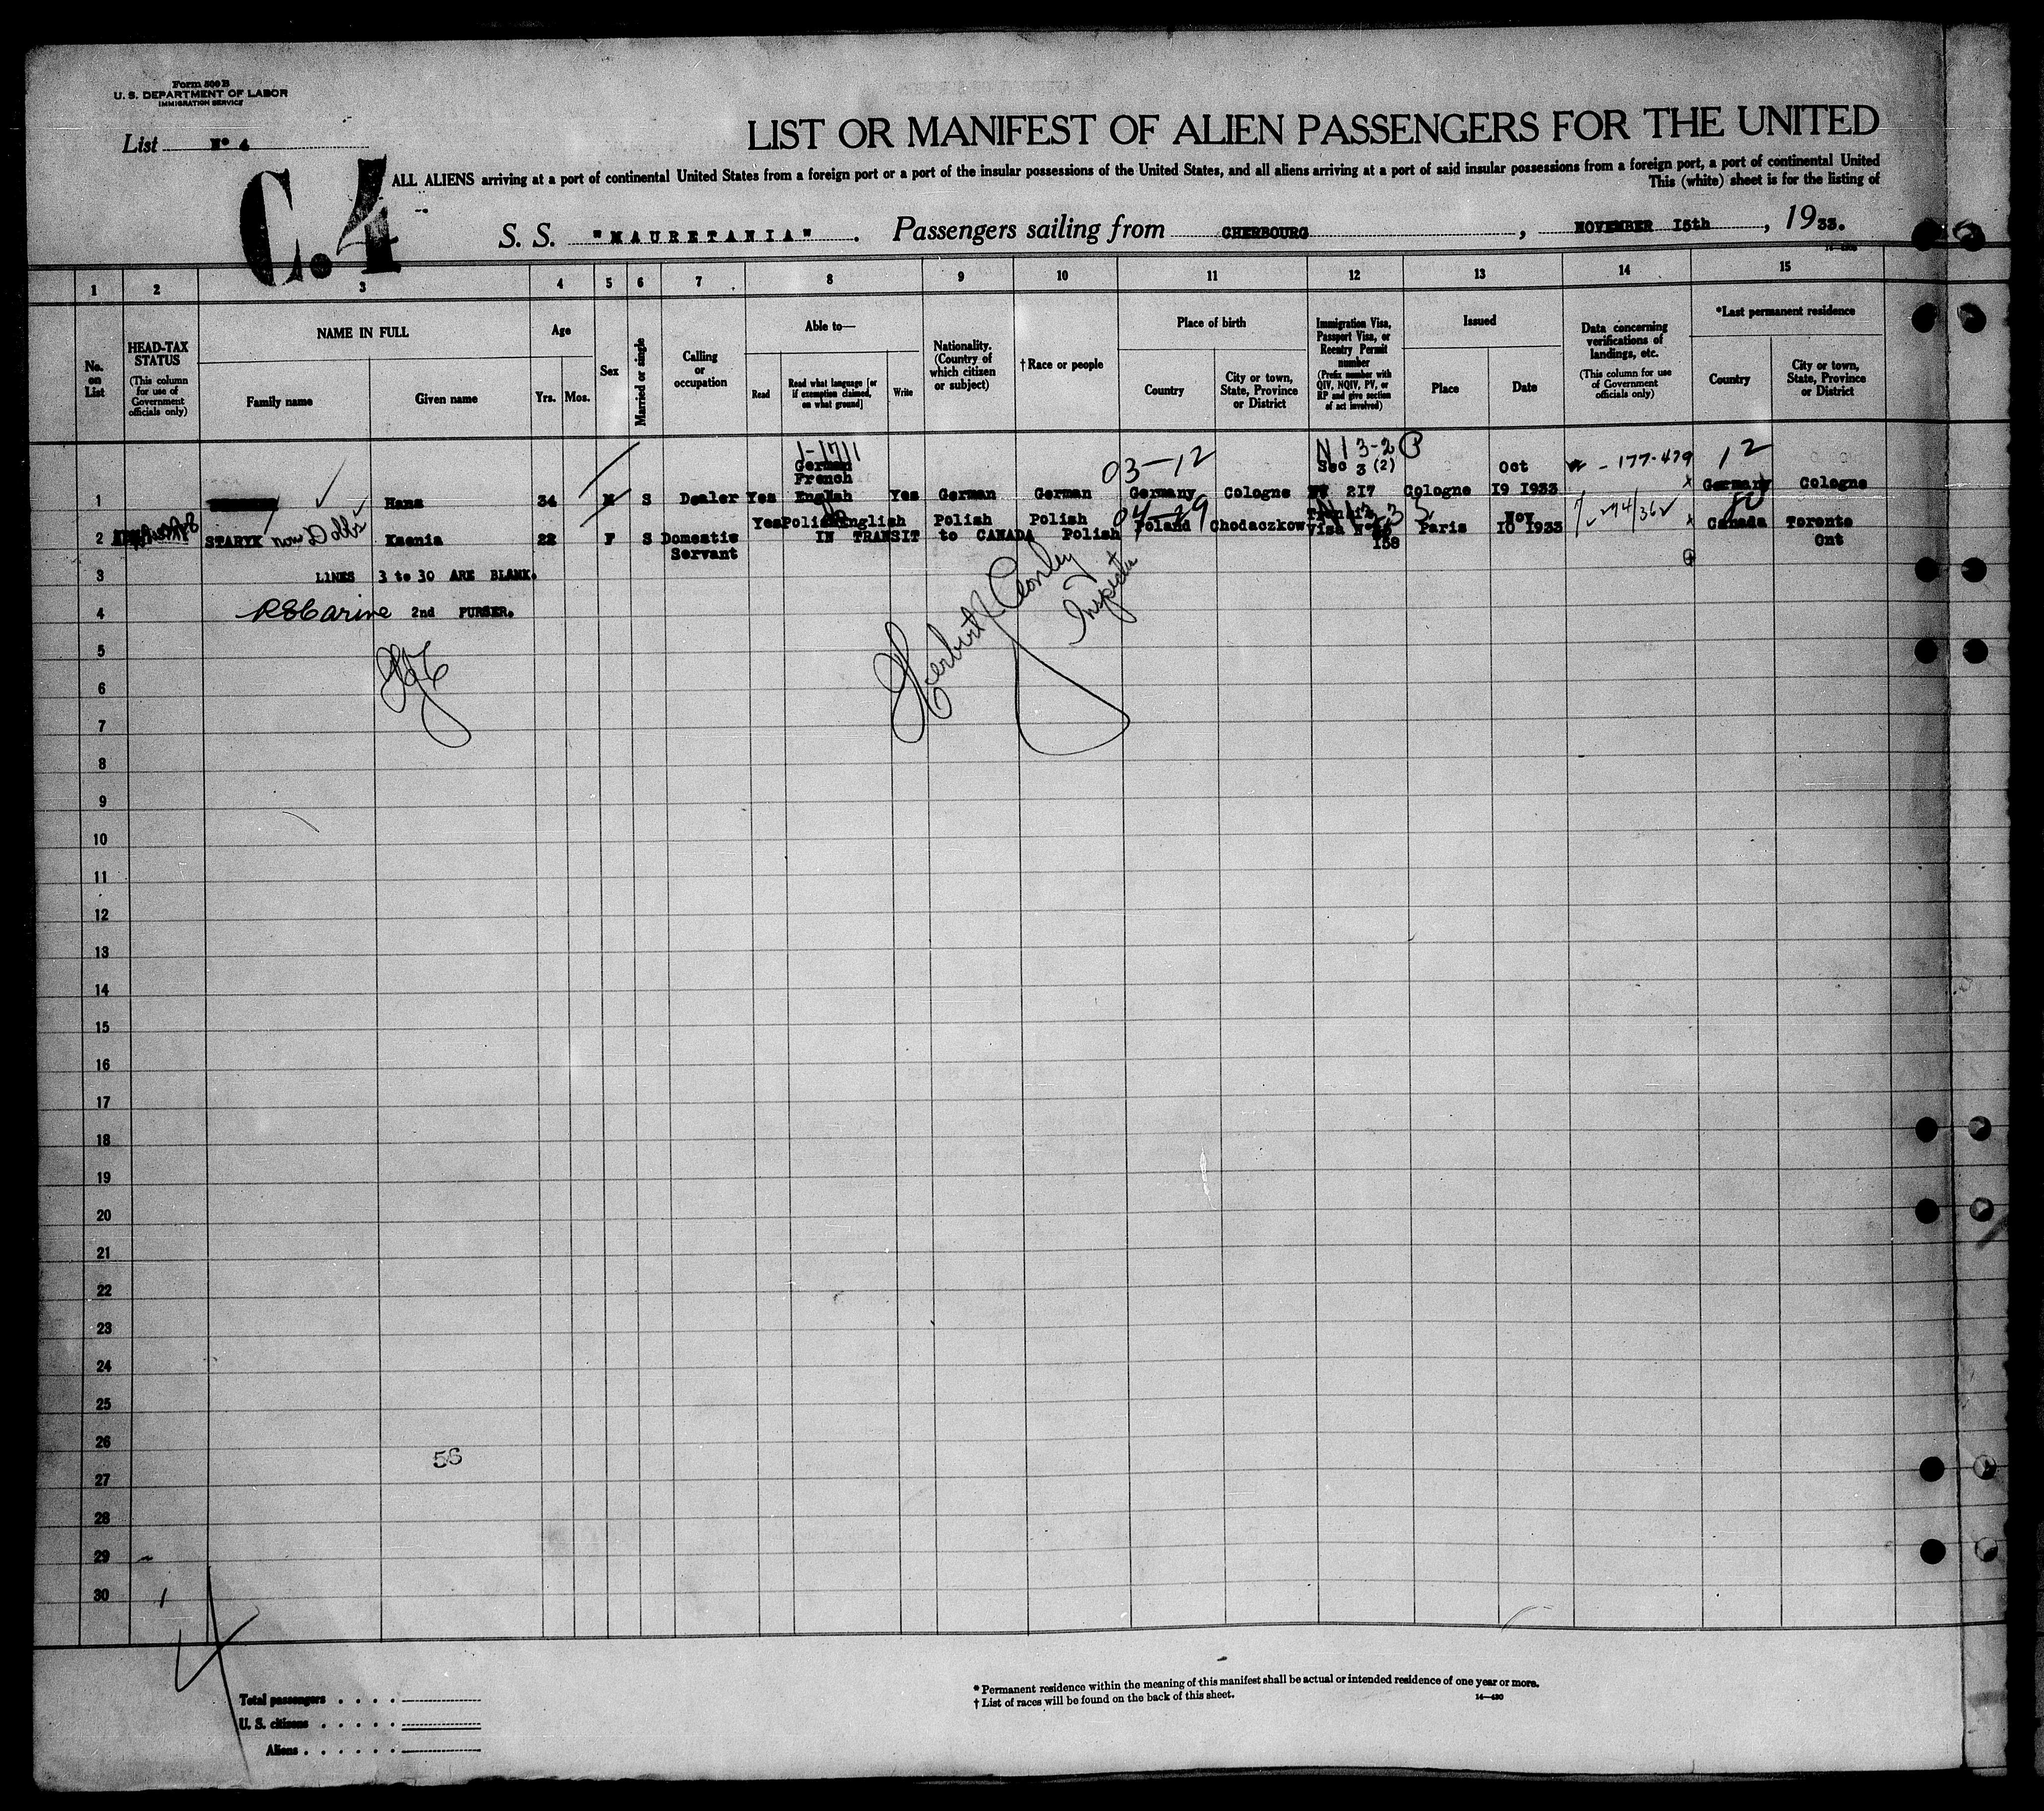 Form 500 B
U. S. DEPARTMENT OF LABOR
IMMIGRATION SERVICE
List Nº 4
C.4
LIST OR MANIFEST OF ALIEN PASSENGERS FOR THE UNITED
ALL ALIENS arriving at a port of continental United States from a foreign port or a port of the insular possessions of the United States, and all aliens arriving at a port of said insular possessions from a foreign port, a port of continental United
This (white) sheet is for the listing of
S. S. "MAURETANIA". Passengers sailing from CHERBOURG, NOVEMBER 15th, 1933.
1 2 3 4 5 6 7 8 9 10 11 12 13 14 15
No. on List
HEAD-TAX STATUS
(This column for use of Government officials only)
NAME IN FULL
Family name
Given name
Age
Yrs.
Mos.
Sex
Married or single
Calling or occupation
Able to—
Read
Read what language [or if exemption claimed, on what ground]
Write
Nationality. (Country of which citizen or subject)
†Race or people
Place of birth
Country
City or town, State, Province or District
Immigration Visa, Passport Visa, or Reentry Permit number
(Prefix number with QIV, NQIV, PV, or RP and give section of act involved)
Issued
Place
Date
Data concerning verifications of landings, etc.
(This column for use of Government officials only)
*Last permanent residence
Country
City or town, State, Province or District
1-1711
German
French
03-12
N13-2 P
Sec 3 (2)
Oct
- 177-479
12
1 Hans 34 M S Dealer Yes English Yes German German Germany Cologne 217 Cologne 19 1933 x Germany Cologne
Yes Polish English Polish Polish Poland Chodaczkow Transit Nov
2 STARYK now Ksenia 22 F S Domestic IN TRANSIT to CANADA Polish Visa Nº Paris 10 1933 x Canada Toronto
Servant 158 Ont
3 LINES 3 to 30 ARE BLANK.
4 2nd PURSER.
Inspector
5
6
7
8
9
10
11
12
13
14
15
16
17
18
19
20
21
22
23
24
25
26
56
27
28
29
30
Total passengers
U. S. citizens
Aliens
* Permanent residence within the meaning of this manifest shall be actual or intended residence of one year or more.
† List of races will be found on the back of this sheet.
14—430